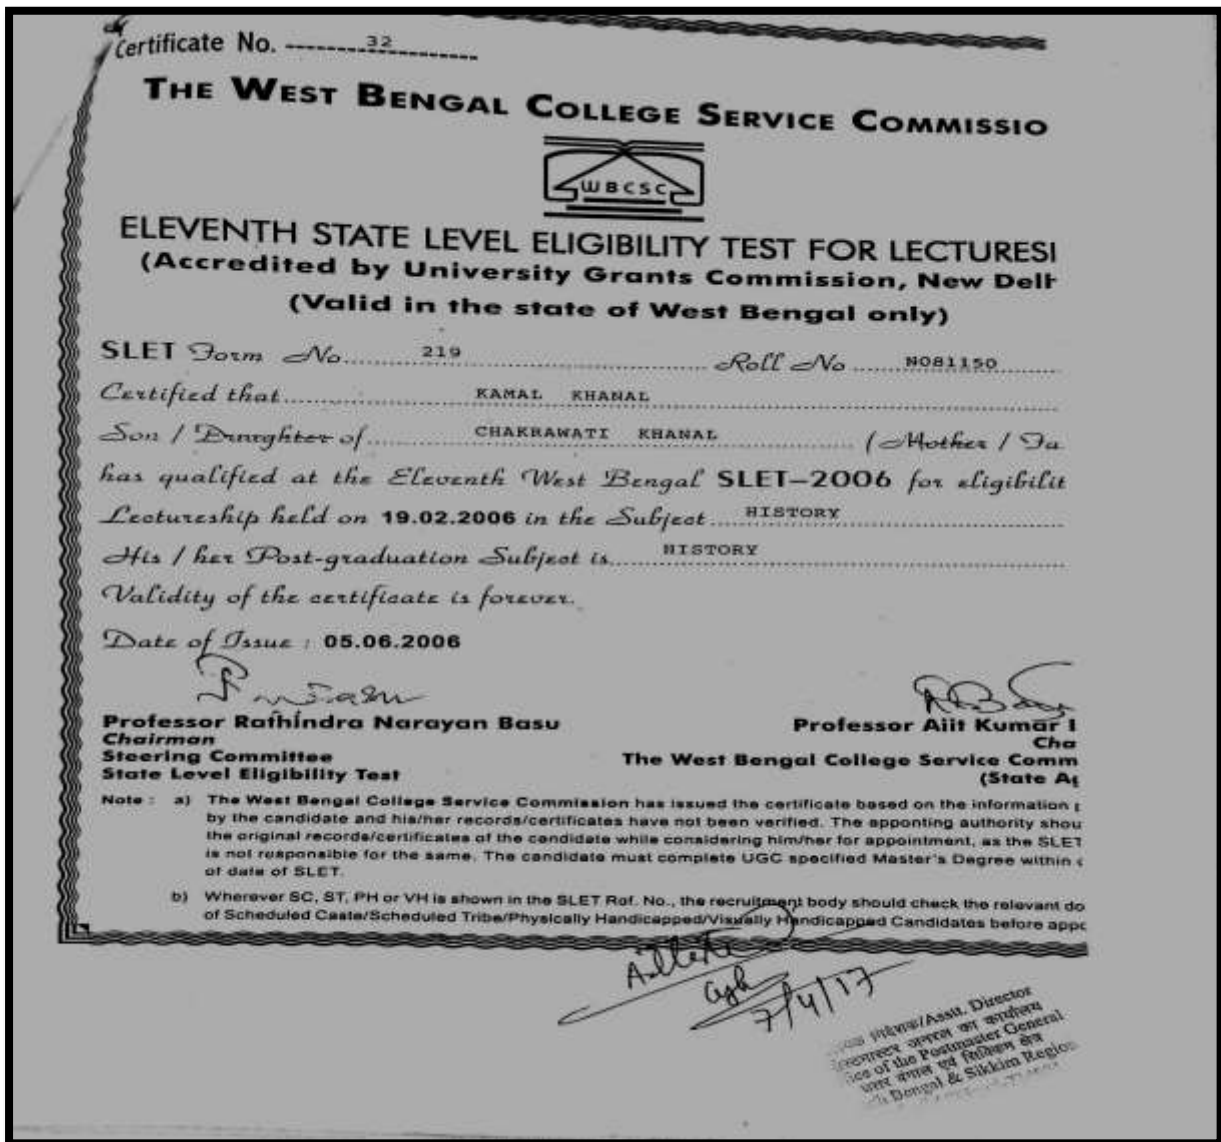 Certificate No. ----------32-------------
THE WEST BENGAL COLLEGE SERVICE COMMISSIO
WBCSC
ELEVENTH STATE LEVEL ELIGIBILITY TEST FOR LECTURESI
(Accredited by University Grants Commission, New Delh
(Valid in the state of West Bengal only)
SLET Form No. 219 Roll No N081150
Certified that KAMAL KHANAL
Son / Daughter of CHAKRAWATI KHANAL (Mother / Fa
has qualified at the Eleventh West Bengal SLET–2006 for eligibilit
Lectureship held on 19.02.2006 in the Subject HISTORY
His / her Post-graduation Subject is HISTORY
Validity of the certificate is forever.
Date of Issue : 05.06.2006
Professor Rathindra Narayan Basu Professor Ajit Kumar
Chairman Cha
Steering Committee The West Bengal College Service Comm
State Level Eligibility Test (State Ag
Note : a) The West Bengal College Service Commission has issued the certificate based on the information
by the candidate and his/her records/certificates have not been verified. The apponting authority shou
the original records/certificates of the candidate while considering him/her for appointment, as the SLET
is not responsible for the same. The candidate must complete UGC specified Master's Degree within
of date of SLET.
b) Wherever SC, ST, PH or VH is shown in the SLET Ref. No., the recruitment body should check the relevant do
of Scheduled Caste/Scheduled Tribe/Physically Handicapped/Visually Handicapped Candidates before appo
7/4/17
निदेशक/Asstt. Director
पोस्टमास्टर जनरल का कार्यालय
ice of the Postmaster General
उत्तर बंगाल एवं सिक्किम क्षेत्र
Bengal & Sikkim Region